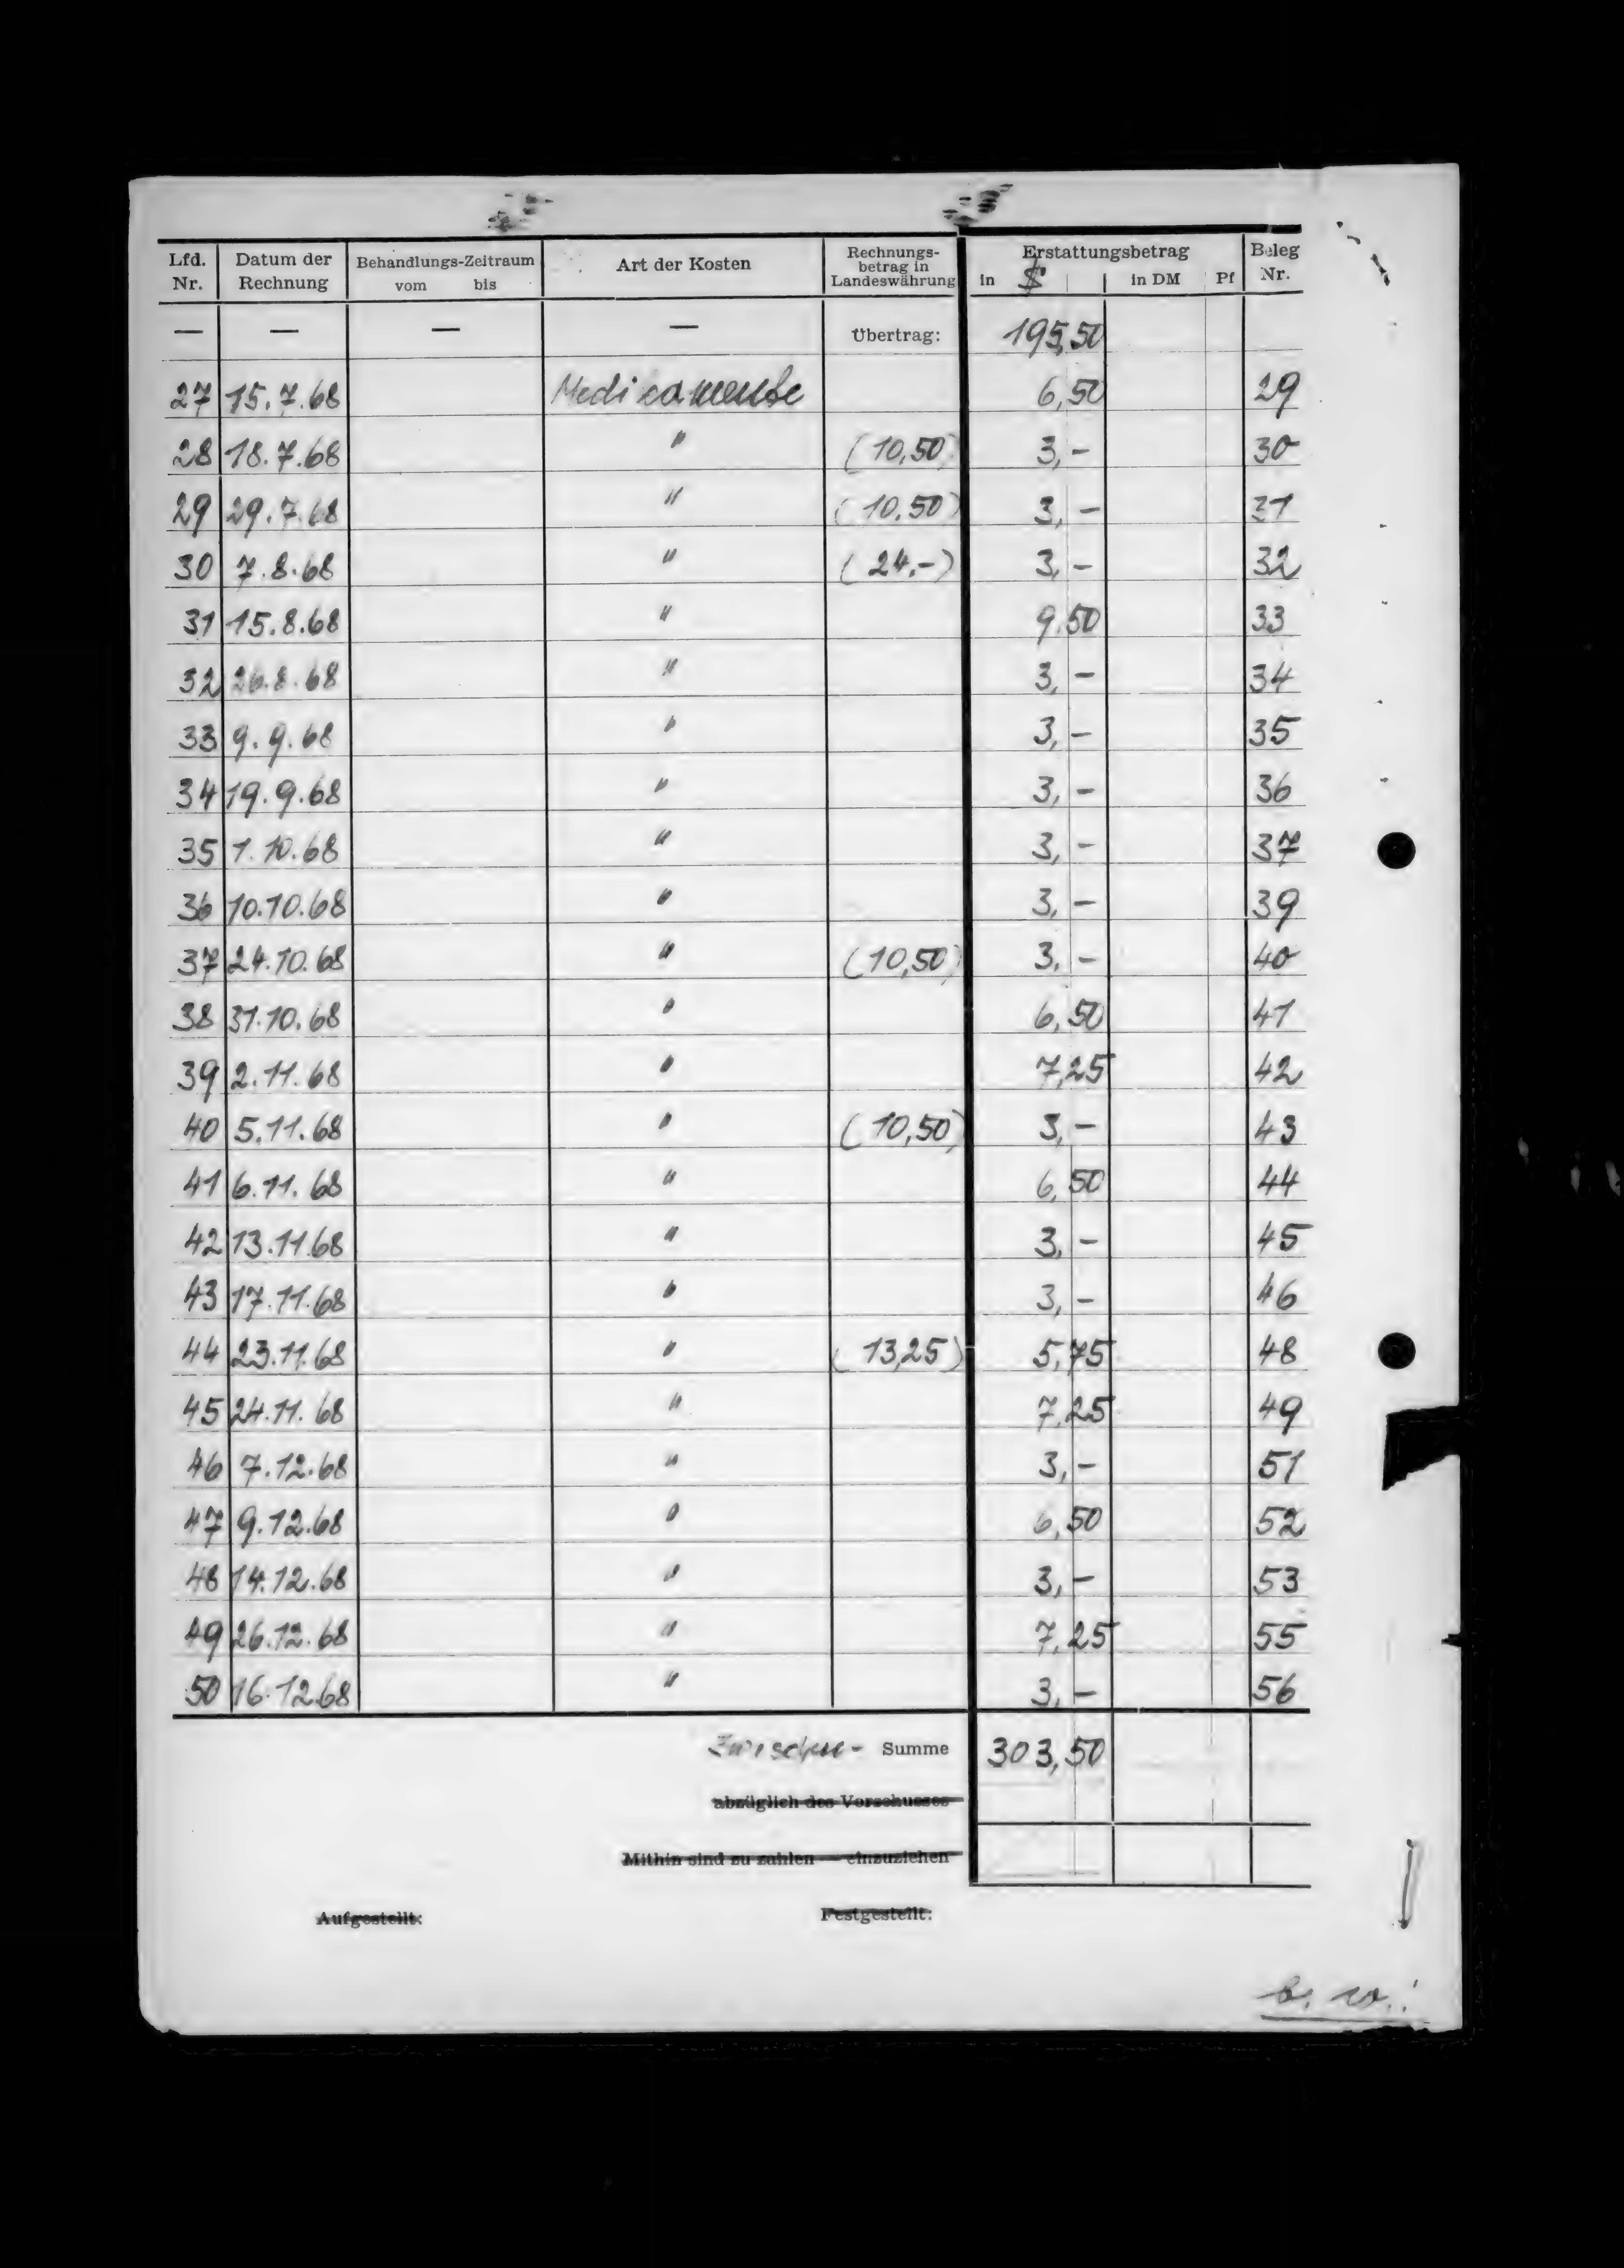 Lfd. Nr. | Datum der Rechnung | Behandlungs-Zeitraum vom bis | Art der Kosten | Rechnungs-betrag in Landeswährung | Erstattungsbetrag in $ | in DM Pf | Beleg Nr.
— — — — Übertrag: 195,50
27 15.7.68 Medicamente 6,50 29
28 18.7.68 " (10,50) 3,- 30
29 29.7.68 " (10,50) 3,- 31
30 7.8.68 " (24,-) 3,- 32
31 15.8.68 " 9,50 33
32 26.8.68 " 3,- 34
33 9.9.68 " 3,- 35
34 19.9.68 " 3,- 36
35 1.10.68 " 3,- 37
36 10.10.68 " 3,- 39
37 24.10.68 " (10,50) 3,- 40
38 31.10.68 " 6,50 41
39 2.11.68 " 7,25 42
40 5.11.68 " (10,50) 3,- 43
41 6.11.68 " 6,50 44
42 13.11.68 " 3,- 45
43 17.11.68 " 3,- 46
44 23.11.68 " (13,25) 5,75 48
45 24.11.68 " 7,25 49
46 7.12.68 " 3,- 51
47 9.12.68 " 6,50 52
48 14.12.68 " 3,- 53
49 26.12.68 " 7,25 55
50 16.12.68 " 3,- 56
Zwischen- Summe 303,50
abzüglich des Vorschusses
Mithin sind zu zahlen — einzuziehen
Aufgestellt: Festgestellt:
b. w.!